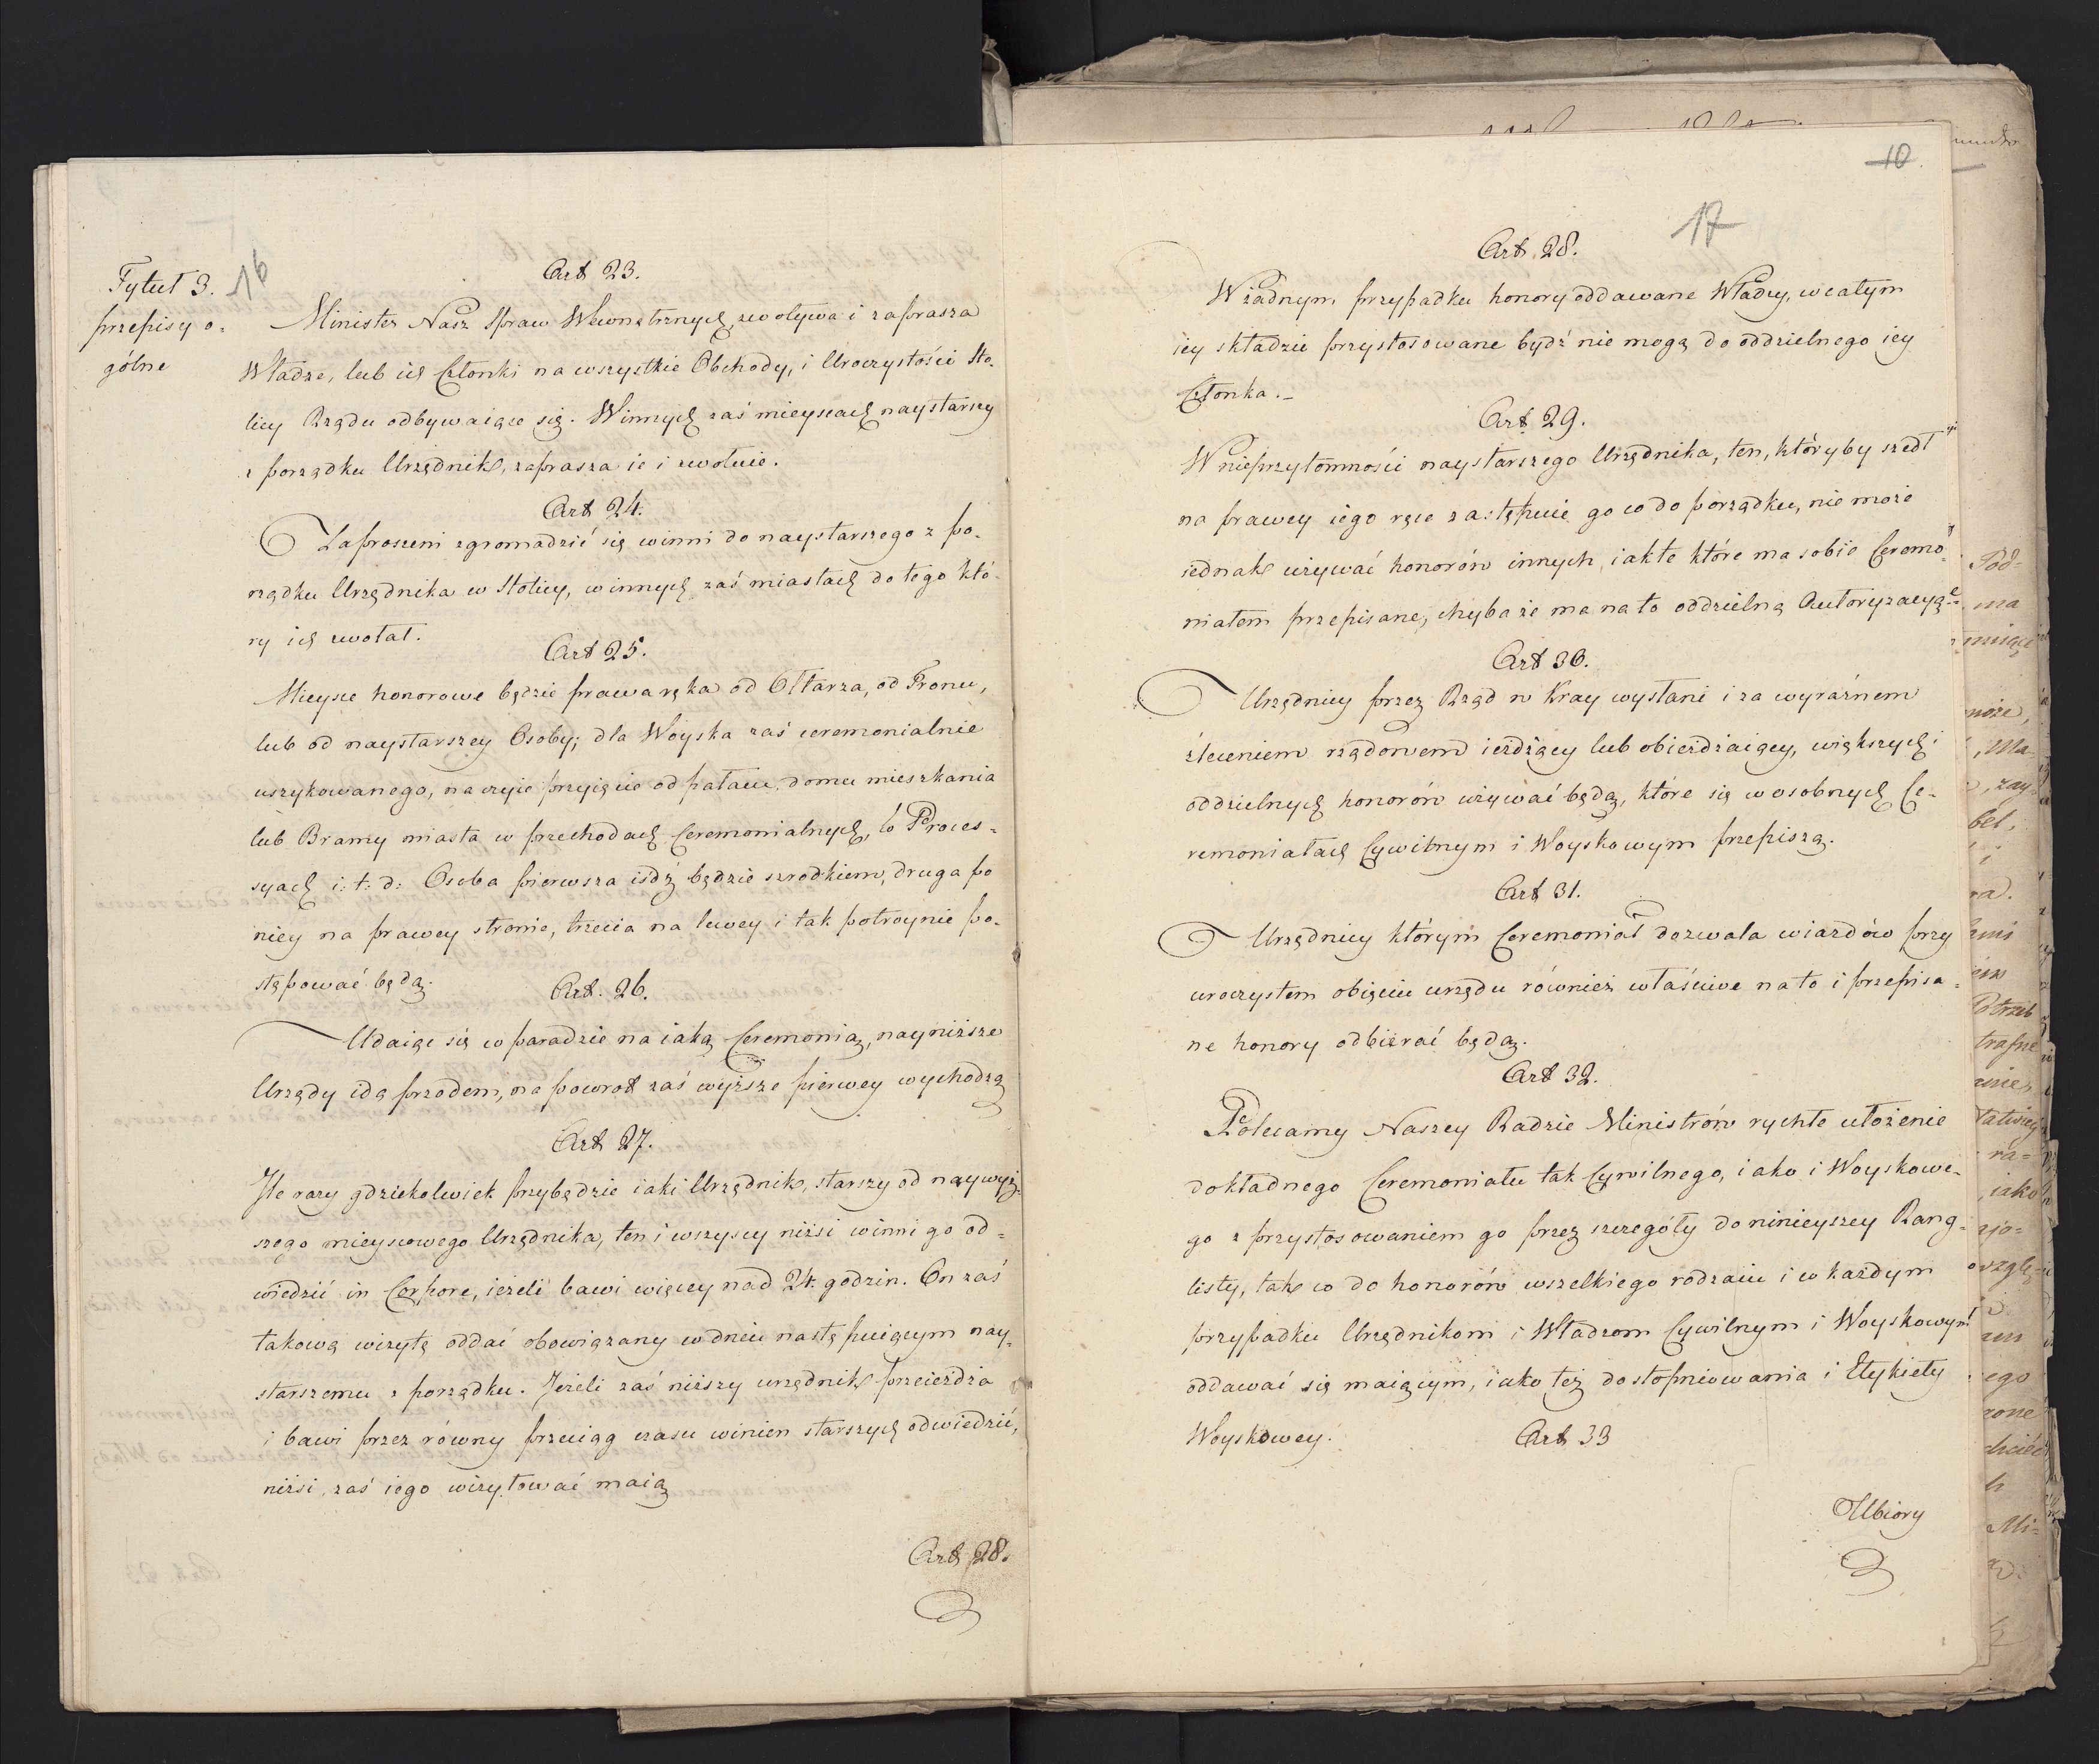 Tytuł 3.
przepisy o=
gólne
16
Art 23.
Minister Nasz Spraw Wewnętrznych, zwoływa i zaprasza
Władze, lub ich Członki na wszystkie Obchody, i Uroczystości Sto=
licy Rządu odbywaiące się. W innych zaś mieyscach naystarszy
z porządku Urzędnik, zaprasza ie i zwołuie.
Art 24.
Zaproszeni zgromadzić się winni do naystarszego z po=
rządku Urzędnika w Stolicy, w innych zaś miastach do tego któ=
ry ich zwołał.
Art 25.
Mieysce honorowe będzie prawa ręka od Ołtarza, od Tronu,
lub od naystarszey Osoby; dla Woyska zaś ceremonialnie
uszykowanego, na czyie przyięcie od pałacu, domu mieszkania
lub Bramy miasta w przechodach Ceremonialnych, w Proces=
syach i: t: d: Osoba pierwsza iśdź będzie szrodkiem, druga po
niey na prawey stronie, trzecia na lewey i tak potroynie po=
stępować będą.
Art. 26.
Udaiąc się w paradzie na iaką Ceremonią, nayniższe
Urzędy idą przodem, na powrot zaś wyższe pierwey wychodzą
Art 27.
Ile razy gdziekolwiek przybędzie iaki Urzędnik, starszy od naywyż=
szego mieyscowego Urzędnika, ten i wszyscy niżsi winni go od=
wiedzić in Corpore, ieżeli bawi więcey nad 24. godzin. On zaś
takową wizytę oddać obowiązany w dniu następuiącym nay=
starszemu z porządku. Jeżeli zaś niższy urzędnik przeieżdża
i bawi przez równy przeciąg czasu winien starszych odwiedzić,
niżsi zaś iego wizytować maią
Art 28.
10.
17
Art. 28.
W żadnym przypadku honory oddawane Władzy, w całym
iey składzie przystosowane bydź nie mogą do oddzielnego iey
Członka.–
Art 29.
W nieprzytomności naystarszego Urzędnika, ten, któryby szedł
na prawey iego ręce zastępuie go co do porządku, nie może
iednak używać honorów innych, iak te które ma sobie Ceremo=
niałem przepisane, chyba że ma na to oddzielną Autoryzacyą
Art 30.
Urzędnicy przez Rząd w Kray wysłani i za wyraźnem
zleceniem rządowem ieżdżący lub obieżdżaiący, większych i
oddzielnych honorów używać będą, które się w osobnych Ce=
remoniałach Cywilnym i Woyskowym przepiszą.
Art 31.
Urzędnicy którym Ceremoniał dozwala wiazdów przy
uroczystem obięciu urzędu również właściwe na to i przepisa=
ne honory odbierać będą.
Art 32.
Polecamy Naszey Radzie Ministrów rychłe ułożenie
dokładnego Ceremoniału tak Cywilnego, iako i Woyskowe=
go z przystosowaniem go przez szczegóły do ninieyszey Rang=
listy, tak co do honorów wszelkiego rodzaiu i w każdym
przypadku Urzędnikom i Władzom Cywilnym i Woyskowym
oddawać się maiącym, iako też do stopniowania i Etykiety
Woyskowey.
Art 33
Ubiory